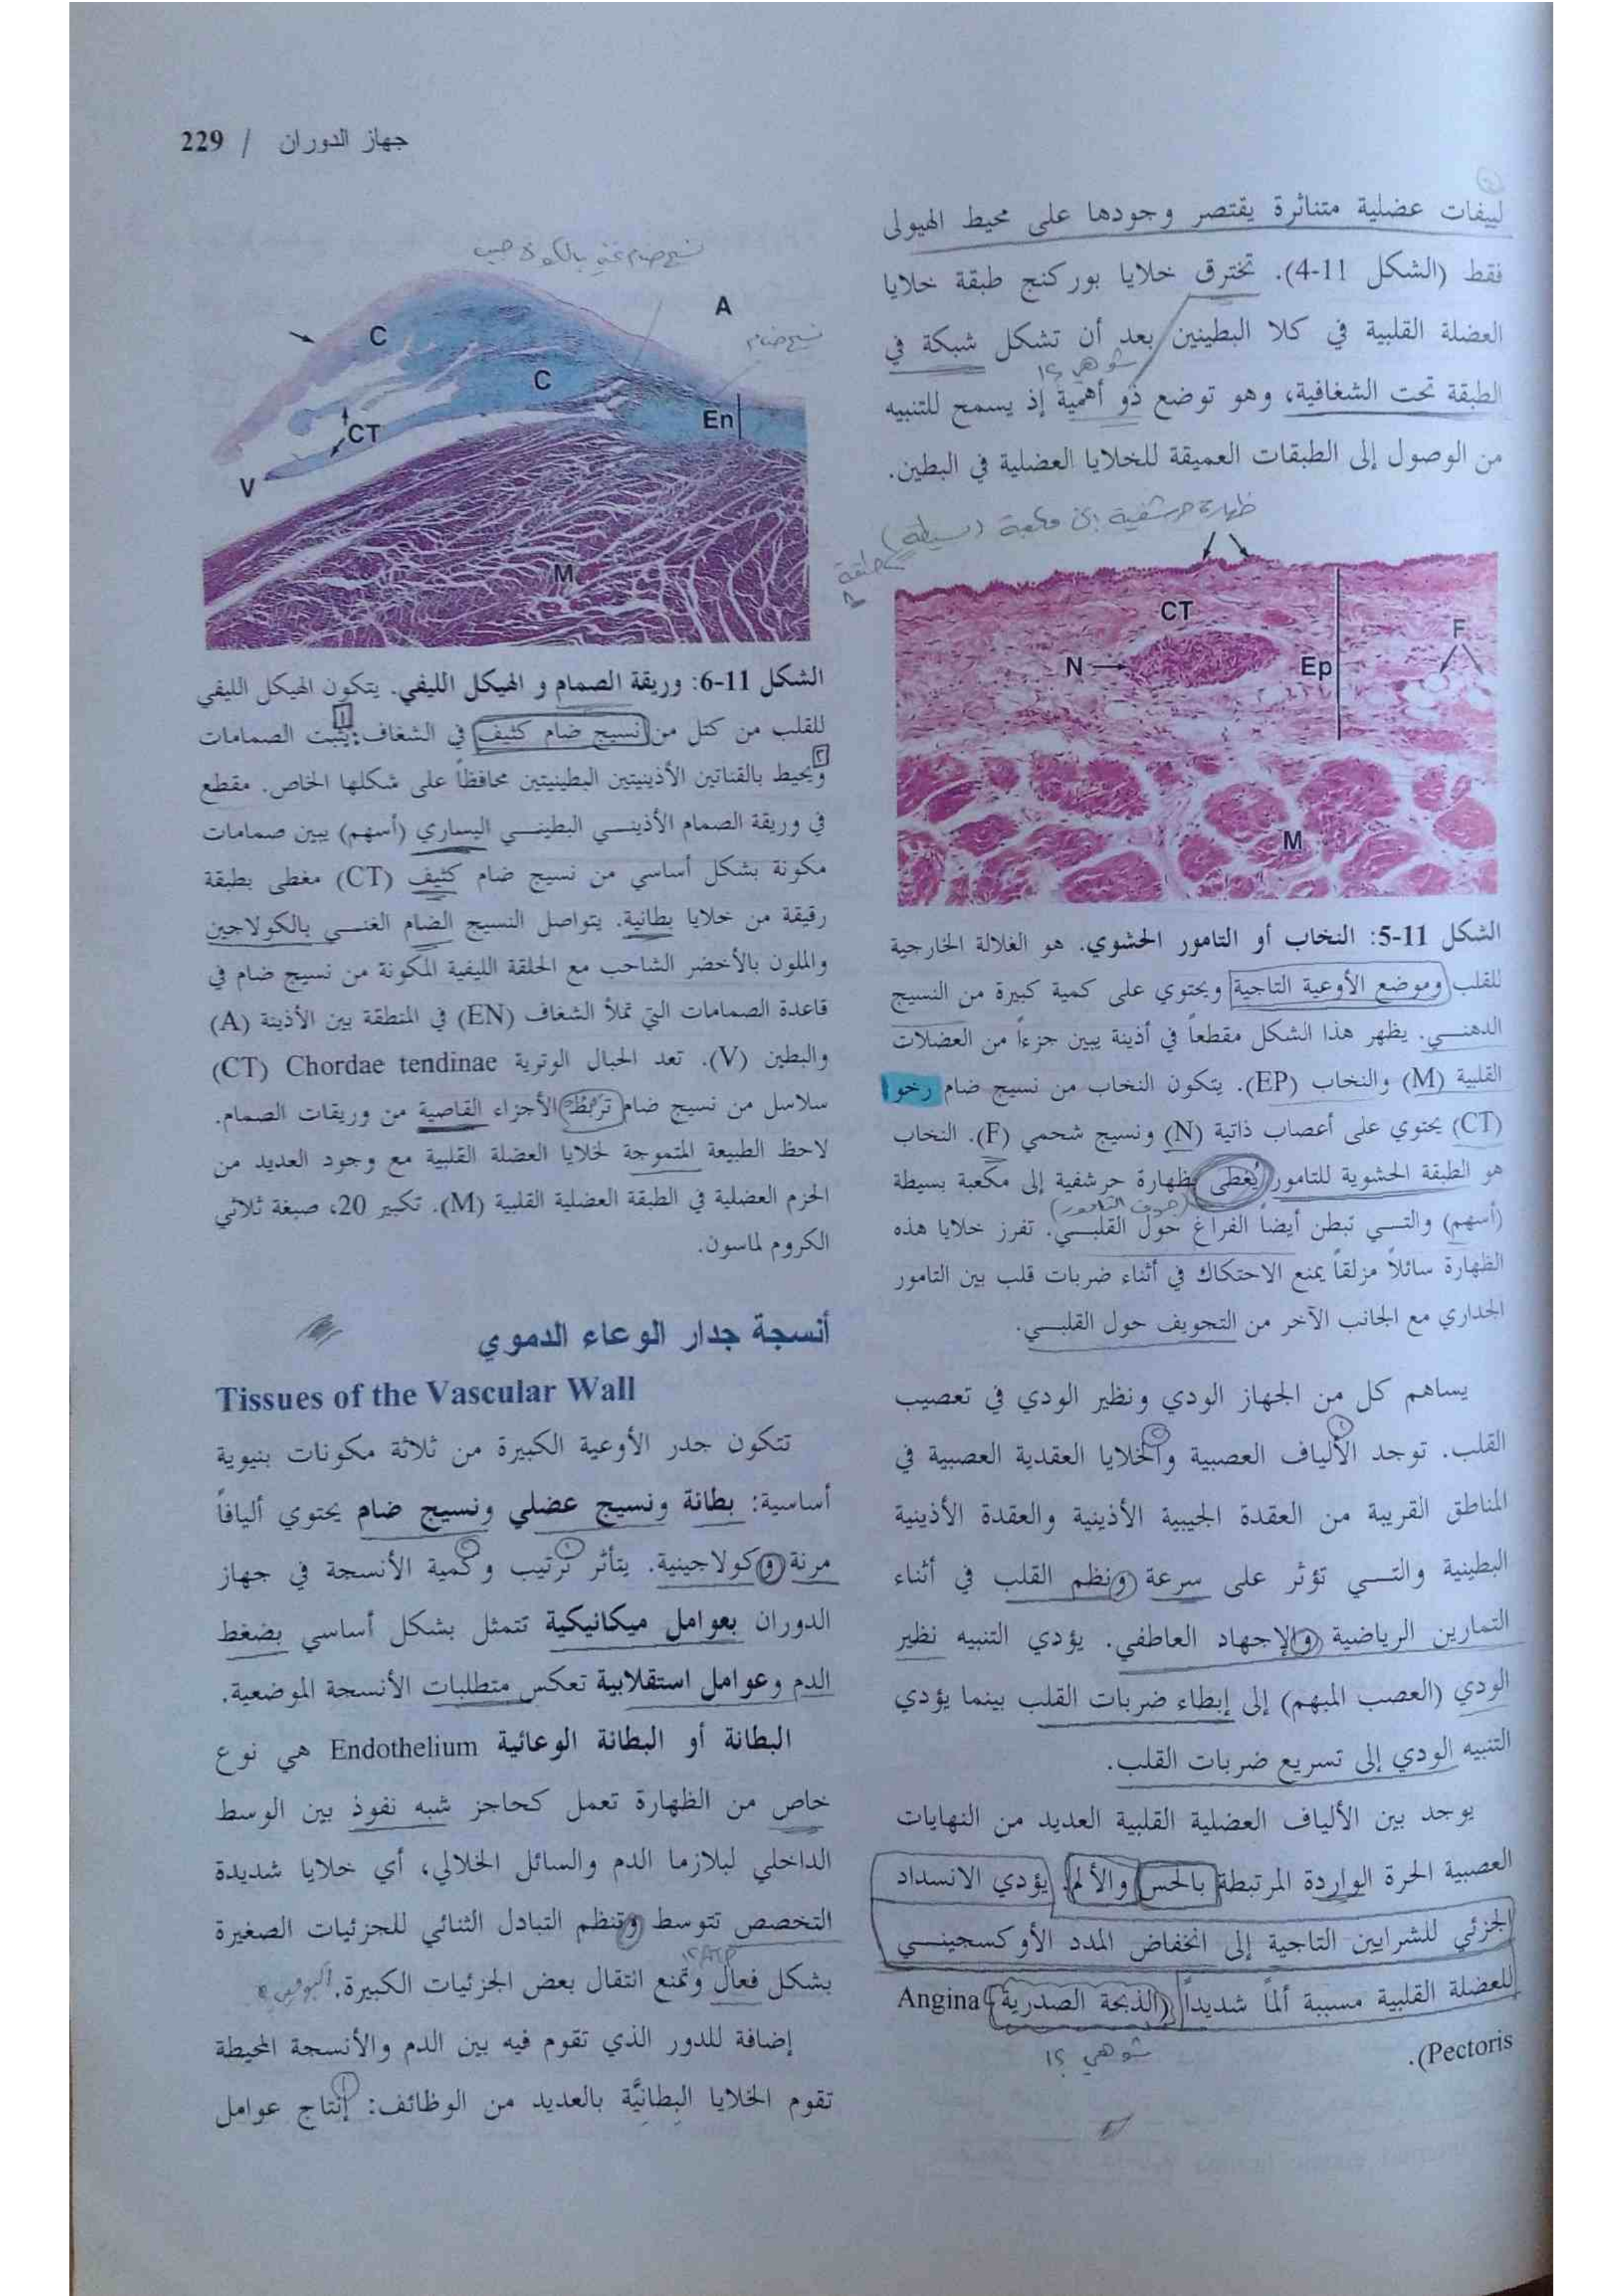 جهاز الدوران / 229
لييفات عضلية متناثرة يقتصر وجودها على محيط الهيولى
فقط (الشكل 11-4). تخترق خلايا بوركنج طبقة خلايا
العضلة القلبية في كلا البطينين بعد أن تشكل شبكة في
شو هي ؟!
الطبقة تحت الشغافية، وهو توضع ذو أهمية إذ يسمح للتنبيه
من الوصول إلى الطبقات العميقة للخلايا العضلية في البطين.
ظهارة حرشفية إلى مكعبة (بسيطة)
CT
F
N
Ep
M
الشكل 11-5: النخاب أو التامور الحشوي. هو الغلالة الخارجية
للقلب وموضع الأوعية التاجية ويحتوي على كمية كبيرة من النسيج
الدهنـــي. يظهر هذا الشكل مقطعاً في أذينة يبين جزءاً من العضلات
القلبية (M) والنخاب (EP). يتكون النخاب من نسيج ضام رخو
(CT) يحتوي على أعصاب ذاتية (N) ونسيج شحمي (F). النخاب
هو الطبقة الحشوية للتامور يُغطى بظهارة حرشفية إلى مكعبة بسيطة
(جوف التامور)
(أسهم) والتـــي تبطن أيضاً الفراغ حول القلبـــي. تفرز خلايا هذه
الظهارة سائلاً مزلقاً يمنع الاحتكاك في أثناء ضربات قلب بين التامور
الجداري مع الجانب الآخر من التجويف حول القلبـــي.
يساهم كل من الجهاز الودي ونظير الودي في تعصيب
القلب. توجد الألياف العصبية والخلايا العقدية العصبية في
المناطق القريبة من العقدة الجيبية الأذينية والعقدة الأذينية
البطينية والتـــي تؤثر على سرعة ونظم القلب في أثناء
التمارين الرياضية والإجهاد العاطفي. يؤدي التنبيه نظير
الودي (العصب المبهم) إلى إبطاء ضربات القلب بينما يؤدي
التنبيه الودي إلى تسريع ضربات القلب.
يوجد بين الألياف العضلية القلبية العديد من النهايات
العصبية الحرة الواردة المرتبطة بالحس والألم. يؤدي الانسداد
الجزئي للشرايين التاجية إلى انخفاض المدد الأوكسجينـــي
للعضلة القلبية مسببة ألماً شديداً (الذبحة الصدرية Angina
Pectoris).
شو هي ؟!
نسيج ضام غني بالكولاجين
A
نسيج ضام
C
C
En
CT
V
M
الشكل 11-6: وريقة الصمام و الهيكل الليفي. يتكون الهيكل الليفي
للقلب من كتل من نسيج ضام كثيف في الشغاف: يثبت الصمامات
ويحيط بالقناتين الأذينيتين البطينيتين محافظاً على شكلها الخاص. مقطع
في وريقة الصمام الأذينـــي البطينـــي اليساري (أسهم) يبين صمامات
مكونة بشكل أساسي من نسيج ضام كثيف (CT) مغطى بطبقة
رقيقة من خلايا بطانية. يتواصل النسيج الضام الغنـــي بالكولاجين
والملون بالأخضر الشاحب مع الحلقة الليفية المكونة من نسيج ضام في
قاعدة الصمامات التي تملأ الشغاف (EN) في المنطقة بين الأذينة (A)
والبطين (V). تعد الحبال الوترية Chordae tendinae (CT)
سلاسل من نسيج ضام تربط الأجزاء القاصية من وريقات الصمام.
لاحظ الطبيعة المتموجة لخلايا العضلة القلبية مع وجود العديد من
الحزم العضلية في الطبقة العضلية القلبية (M). تكبير 20، صبغة ثلاثي
الكروم لماسون.
أنسجة جدار الوعاء الدموي
Tissues of the Vascular Wall
تتكون جدر الأوعية الكبيرة من ثلاثة مكونات بنيوية
أساسية: بطانة ونسيج عضلي ونسيج ضام يحتوي أليافاً
مرنة وكولاجينية. يتأثر ترتيب وكمية الأنسجة في جهاز
الدوران بعوامل ميكانيكية تتمثل بشكل أساسي بضغط
الدم وعوامل استقلابية تعكس متطلبات الأنسجة الموضعية.
البطانة أو البطانة الوعائية Endothelium هي نوع
خاص من الظهارة تعمل كحاجز شبه نفوذ بين الوسط
الداخلي لبلازما الدم والسائل الخلالي، أي خلايا شديدة
التخصص تتوسط وتنظم التبادل الثنائي للجزئيات الصغيرة
بشكل فعال وتمنع انتقال بعض الجزئيات الكبيرة.
إضافة للدور الذي تقوم فيه بين الدم والأنسجة المحيطة
تقوم الخلايا البطانيَّة بالعديد من الوظائف: إنتاج عوامل